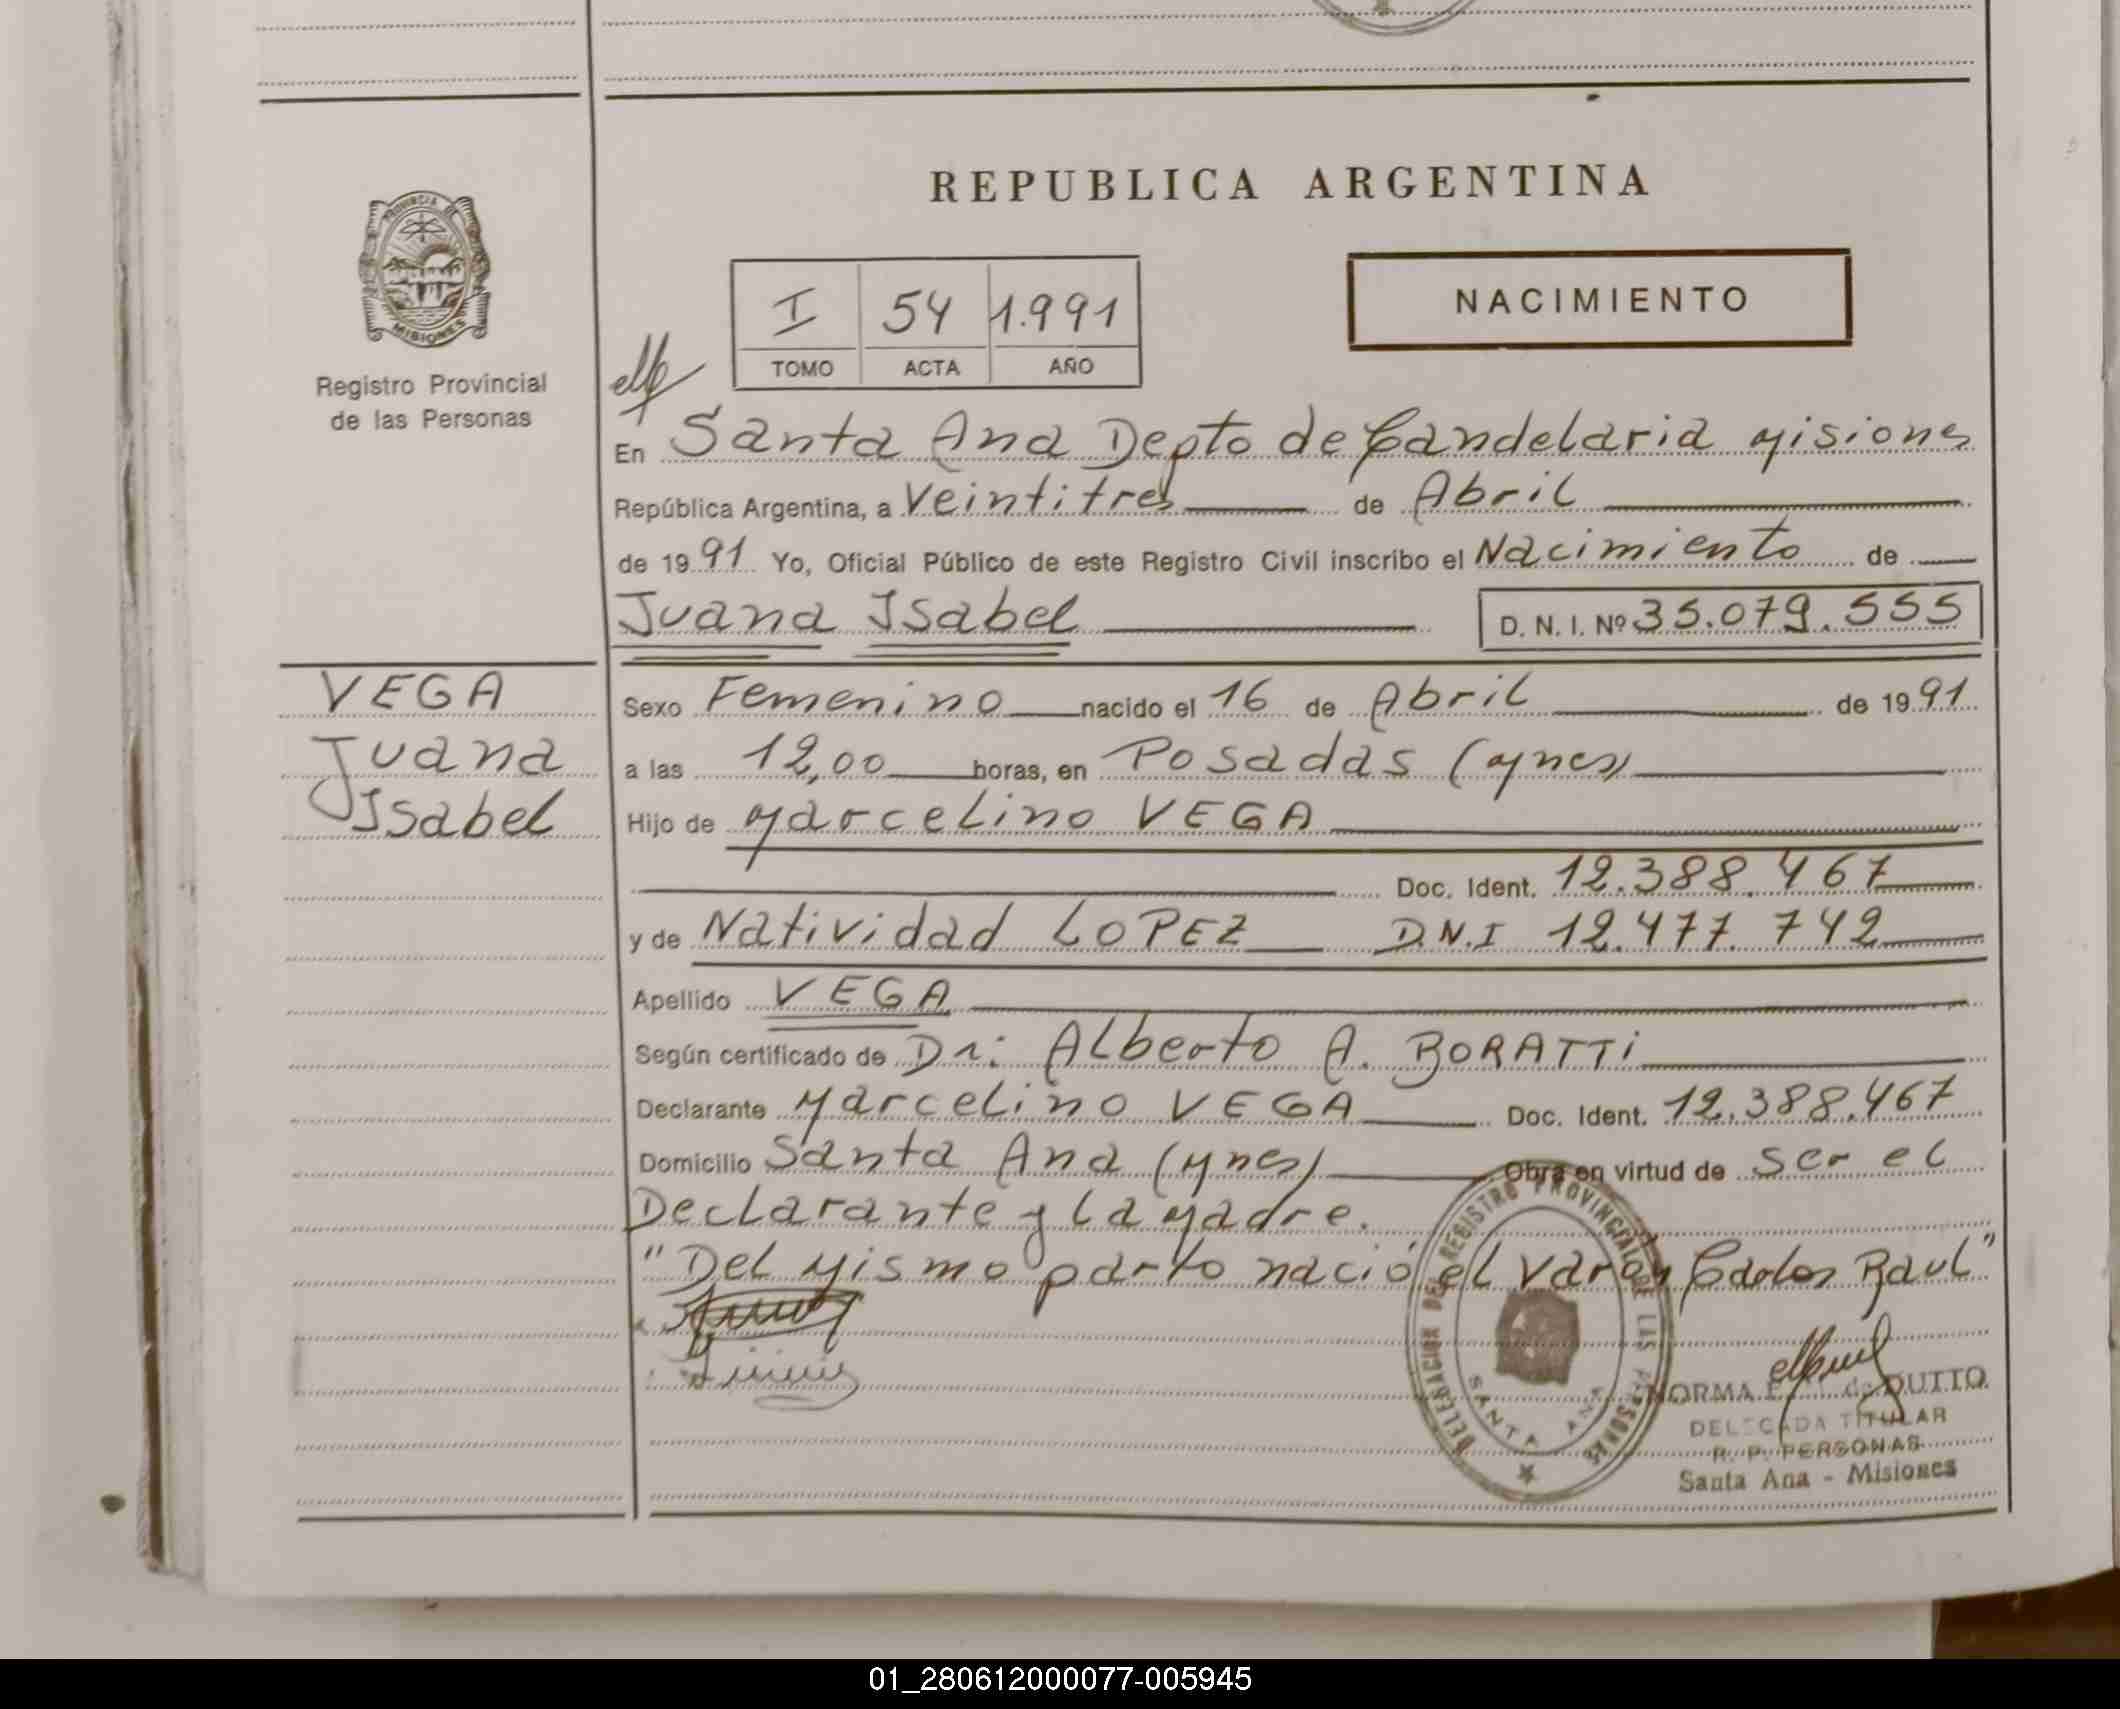 REPUBLICA ARGENTINA
PROVINCIA DE
MISIONES
Registro Provincial
de las Personas
I 54 1.991
TOMO ACTA AÑO
NACIMIENTO
En Santa Ana Depto de Candelaria Misiones
República Argentina, a Veintitres de Abril
de 1991 Yo, Oficial Público de este Registro Civil inscribo el Nacimiento de
Juana Isabel D. N. I. Nº 35.079.555
VEGA
Juana
Isabel
Sexo Femenino nacido el 16 de Abril de 1991
a las 12,00 horas, en Posadas (Mnes)
Hijo de Marcelino VEGA
Doc. Ident. 12.388.467
y de Natividad LOPEZ D.N.I 12.477.742
Apellido VEGA
Según certificado de Dr: Alberto A. BORATTi
Declarante Marcelino VEGA Doc. Ident. 12.388.467
Domicilio Santa Ana (Mnes) Obra en virtud de ser el
Declarante y la Madre.
"Del Mismo parto nació el varón Carlos Raul"
DELEGACION DEL REGISTRO PROVINCIAL DE LAS PERSONAS
SANTA ANA
NORMA de DUTTO
DELEGADA TITULAR
R. P. PERSONAS
Santa Ana - Misiones
01_280612000077-005945